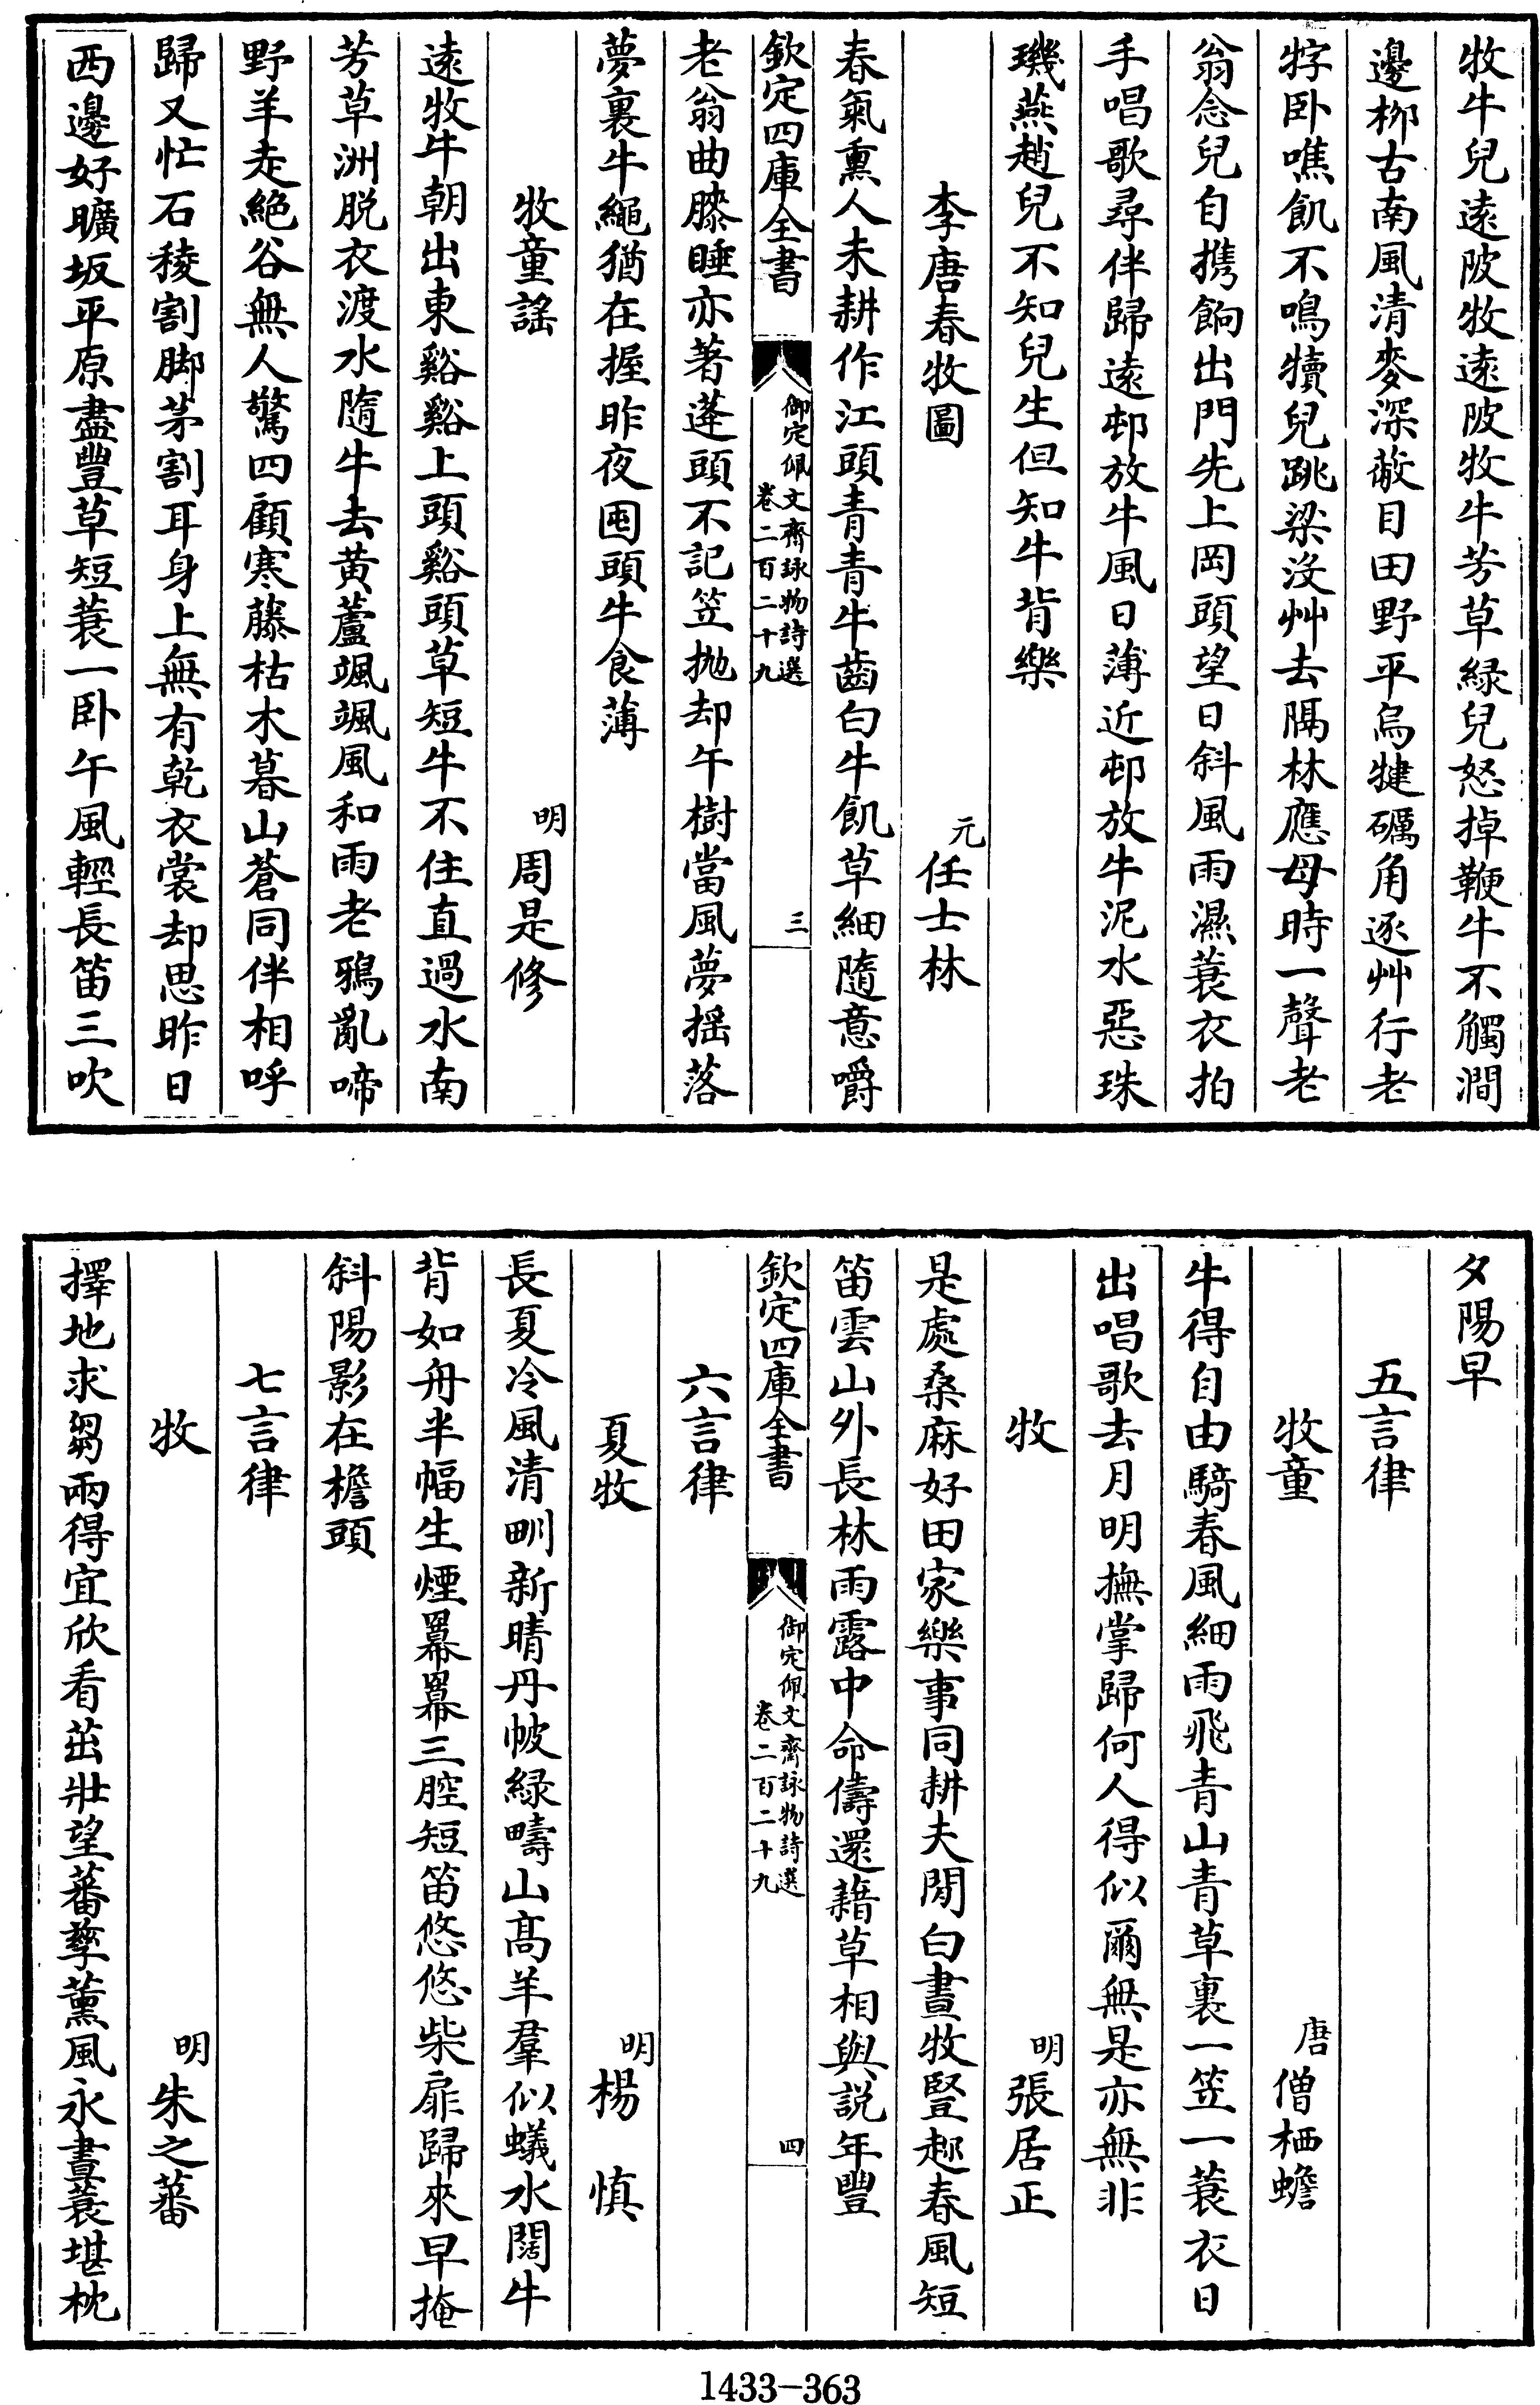 牧牛兒遠陂牧遠陂牧牛芳草緑兒怒掉鞭牛不觸澗
邊栁古南風清麥深蔽目田野平烏犍礪角逐艸行老
牸卧噍飢不鳴犢兒跳梁没艸去隔林應母時一聲老
翁念兒自携餉出門先上岡頭望日斜風雨濕蓑衣拍
手唱歌尋伴歸遠邨放牛風日薄近邨放牛泥水惡珠
璣燕趙兒不知兒生但知牛背樂
李唐春牧圖
元任士林
春氣熏人未耕作江頭青青牛齒白牛飢草細隨意嚼
欽定四庫全書
御定佩文齋詠物詩選
卷二百二十九
三
老翁曲膝睡亦著蓬頭不記笠抛却午樹當風夢摇落
夢裏牛繩猶在握昨夜囤頭牛食薄
牧童謡
明周是修
遠牧牛朝出東谿谿上頭谿頭草短牛不住直過水南
芳草洲脱衣渡水隨牛去黄蘆颯颯風和雨老鴉亂啼
野羊走絶谷無人驚四顧寒藤枯木暮山蒼同伴相呼
歸又忙石稜割脚茅割耳身上無有乾衣裳却思昨日
西邊好曠坂平原盡豐草短蓑一卧午風輕長笛三吹
夕陽早
五言律
牧童
唐僧栖蟾
牛得自由騎春風細雨飛青山青草裏一笠一蓑衣日
出唱歌去月明撫掌歸何人得似爾無是亦無非
牧
明張居正
是處桑麻好田家樂事同耕夫閒白晝牧豎趂春風短
笛雲山外長林雨露中命儔還藉草相與説年豐
欽定四庫全書
御定佩文齋詠物詩選
卷二百二十九
四
六言律
夏牧
明楊慎
長夏冷風清甽新晴丹帔緑疇山髙羊羣似蟻水闊牛
背如舟半幅生煙羃羃三腔短笛悠悠柴扉歸來早掩
斜陽影在檐頭
七言律
牧
明朱之蕃
擇地求芻兩得宜欣看茁壯望蕃孳薫風永晝蓑堪枕
1433-363